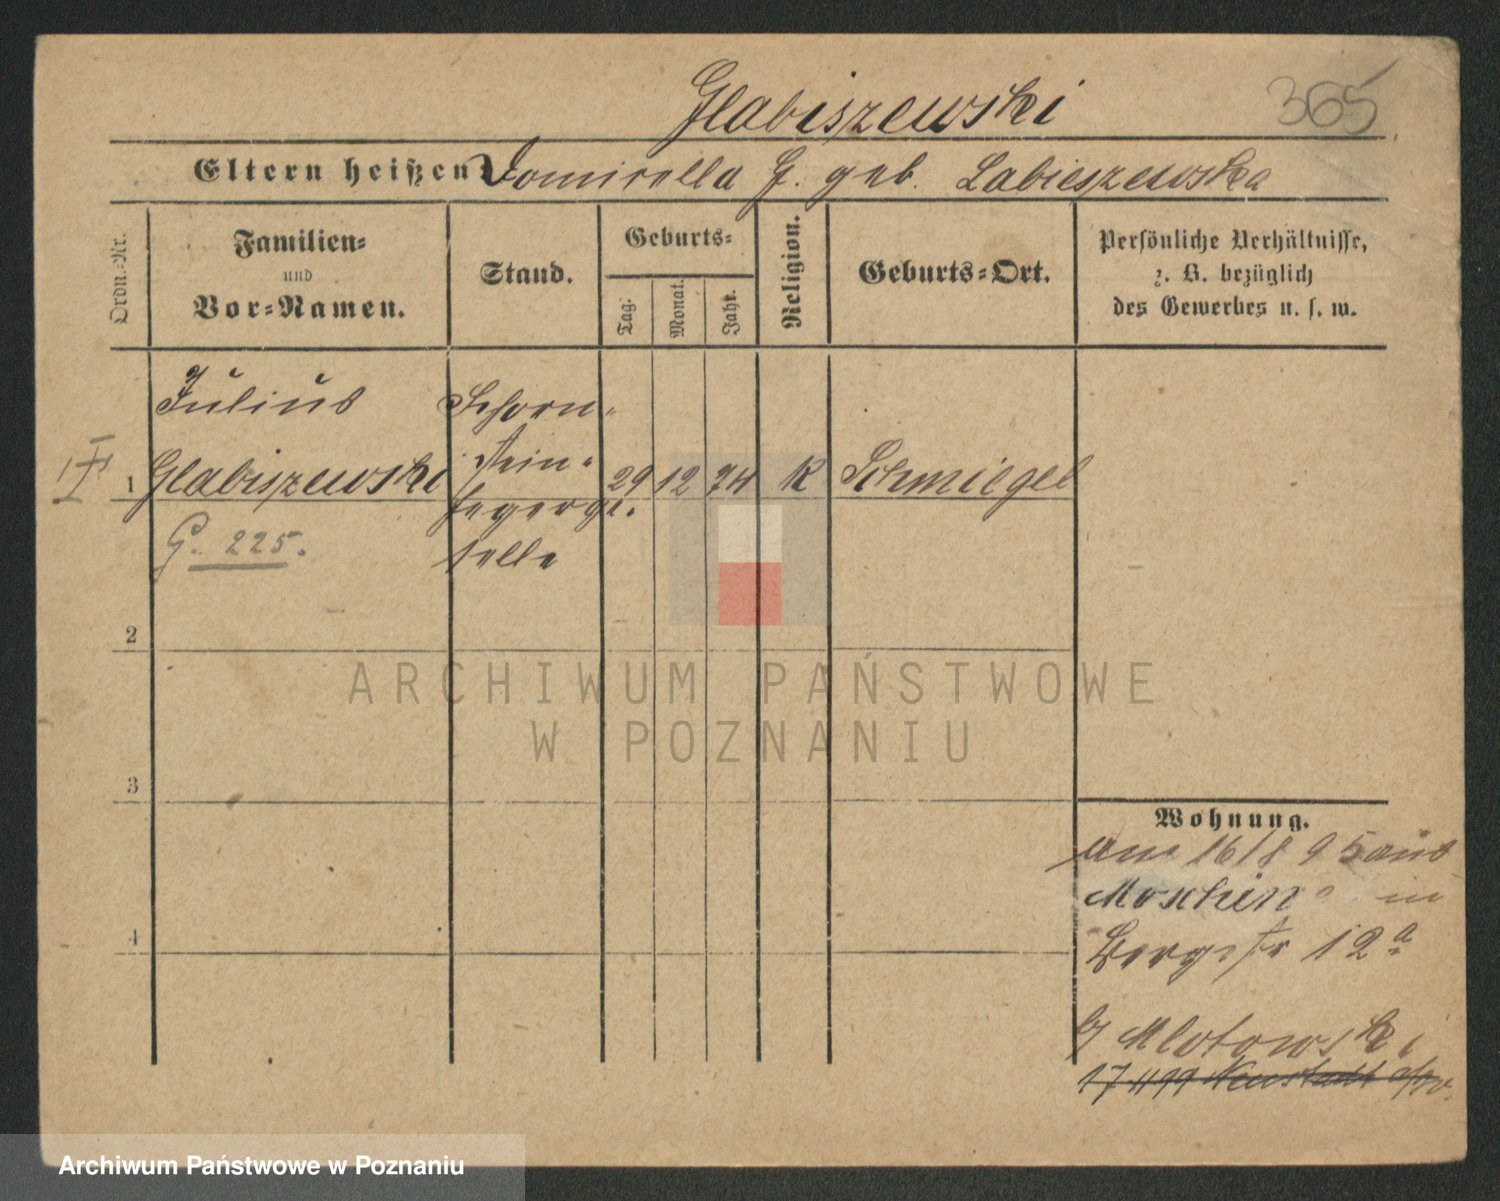 Glabiszewski
365
Eltern heißen: Domicella G. geb. Labieszewska
Ordn.-Nr.
Familien-
und
Vor-Namen.
Stand.
Geburts-
Tag.
Monat.
Jahr.
Religion.
Geburts-Ort.
Persönliche Verhältnisse,
z. B. bezüglich
des Gewerbes u. s. w.
Julius
Schorn-
stein-
1 Glabiszewski
29 12 74 K Schmiegel
fegerge-
selle
G. 225.
2
3
4
Wohnung.
am 16/8 95 aus
Moschin in
Bergstr 12a
b/ Mlotowski
17 4 99 Neustadt a/W.
ARCHIWUM PAŃSTWOWE
W POZNANIU
Archiwum Państwowe w Poznaniu